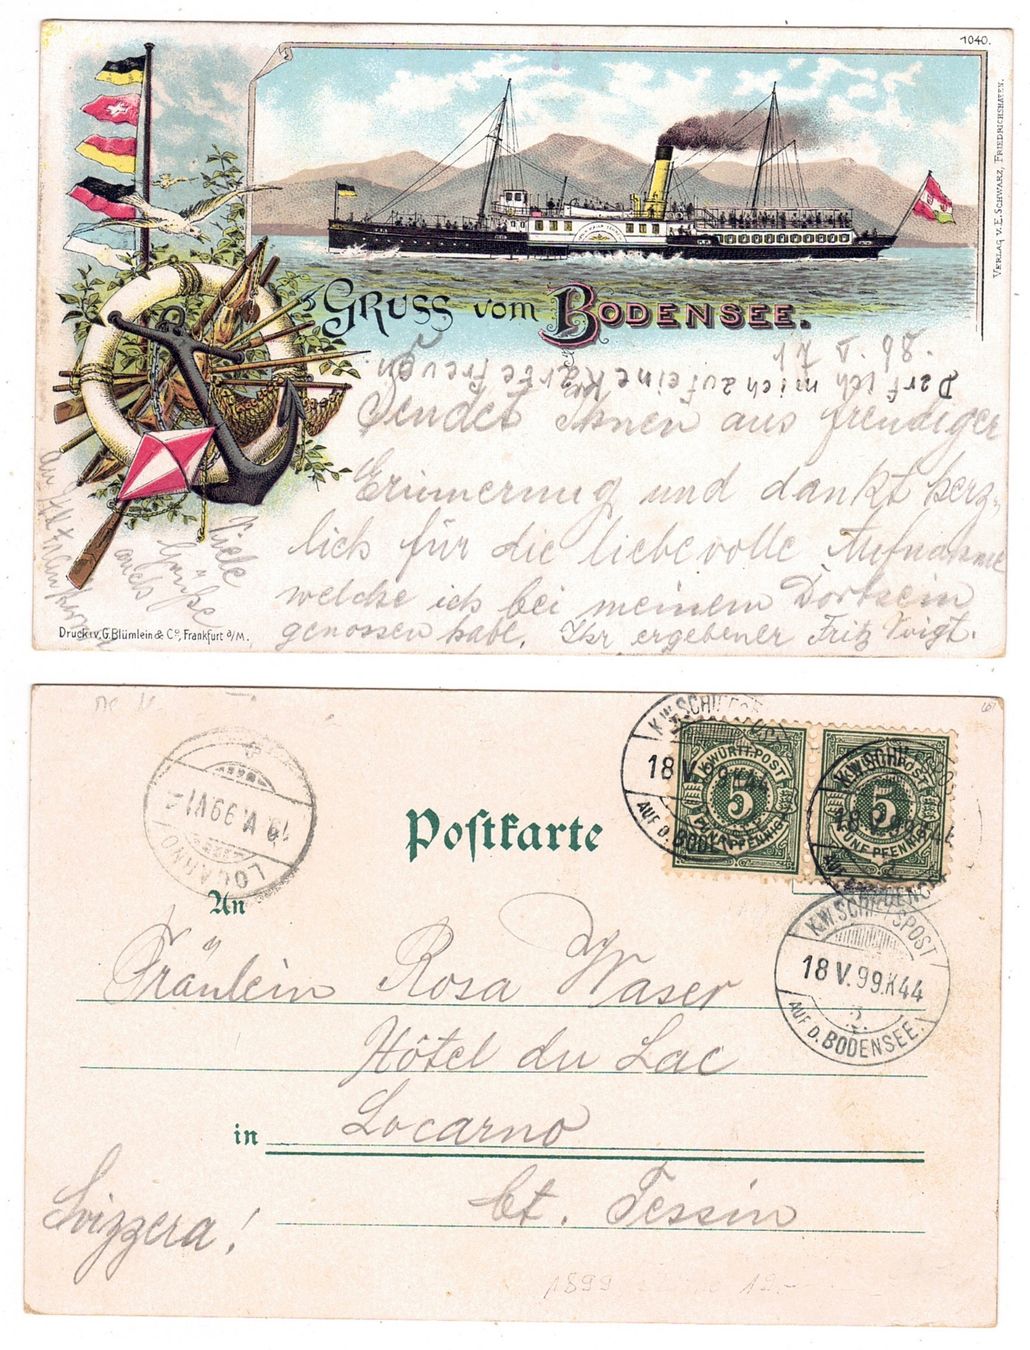 1040.
VERLAG V. E. SCHWARZ, FRIEDRICHSHAFEN.
GRUSS VOM BODENSEE.
Darf ich mich auf eine Karte freuen.
Sendet Ihnen aus freudiger
Erinnerung und dankt herz-
lich für die liebevolle Aufnahme
welche ich bei meinem Dortsein
genossen habe. Ihr ergebener Fritz Voigt.
Viele
Grüße
auch
an
Druck v. G. Blümlein & Co., Frankfurt a/M.
LOCARNO
19.V.99.VI
Postkarte
K. WÜRTT. POST
5
FÜNF PFENNIG
K. WÜRTT. POST
5
FÜNF PFENNIG
K.W. SCHIFFSPOST
18 V. 99. N44
AUF D. BODENSEE.
K.W. SCHIFFSPOST
18 V. 99. N44
AUF D. BODENSEE.
K.W. SCHIFFSPOST
18 V. 99. N44
2.
AUF D. BODENSEE.
An
Fräulein Rosa Waser
Hôtel du Lac
in Locarno
Ct. Tessin
Svizzera!
1899 12.-